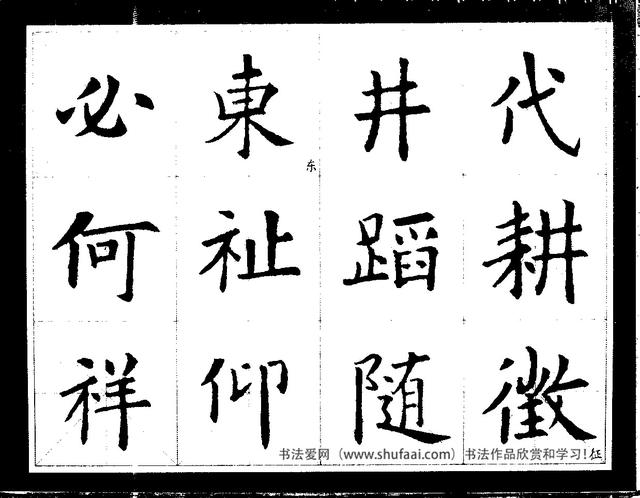 代耕徵征
井蹈随
東东祉仰
必何祥
书法爱网（www.shufaai.com）书法作品欣赏和学习!